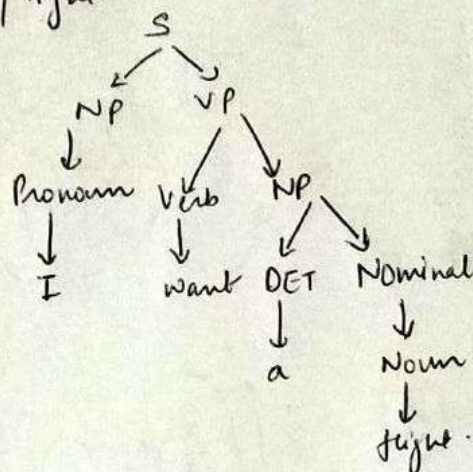 S
NP VP
Pronoun Verb NP
I want DET Nominal
a Noun
flight.